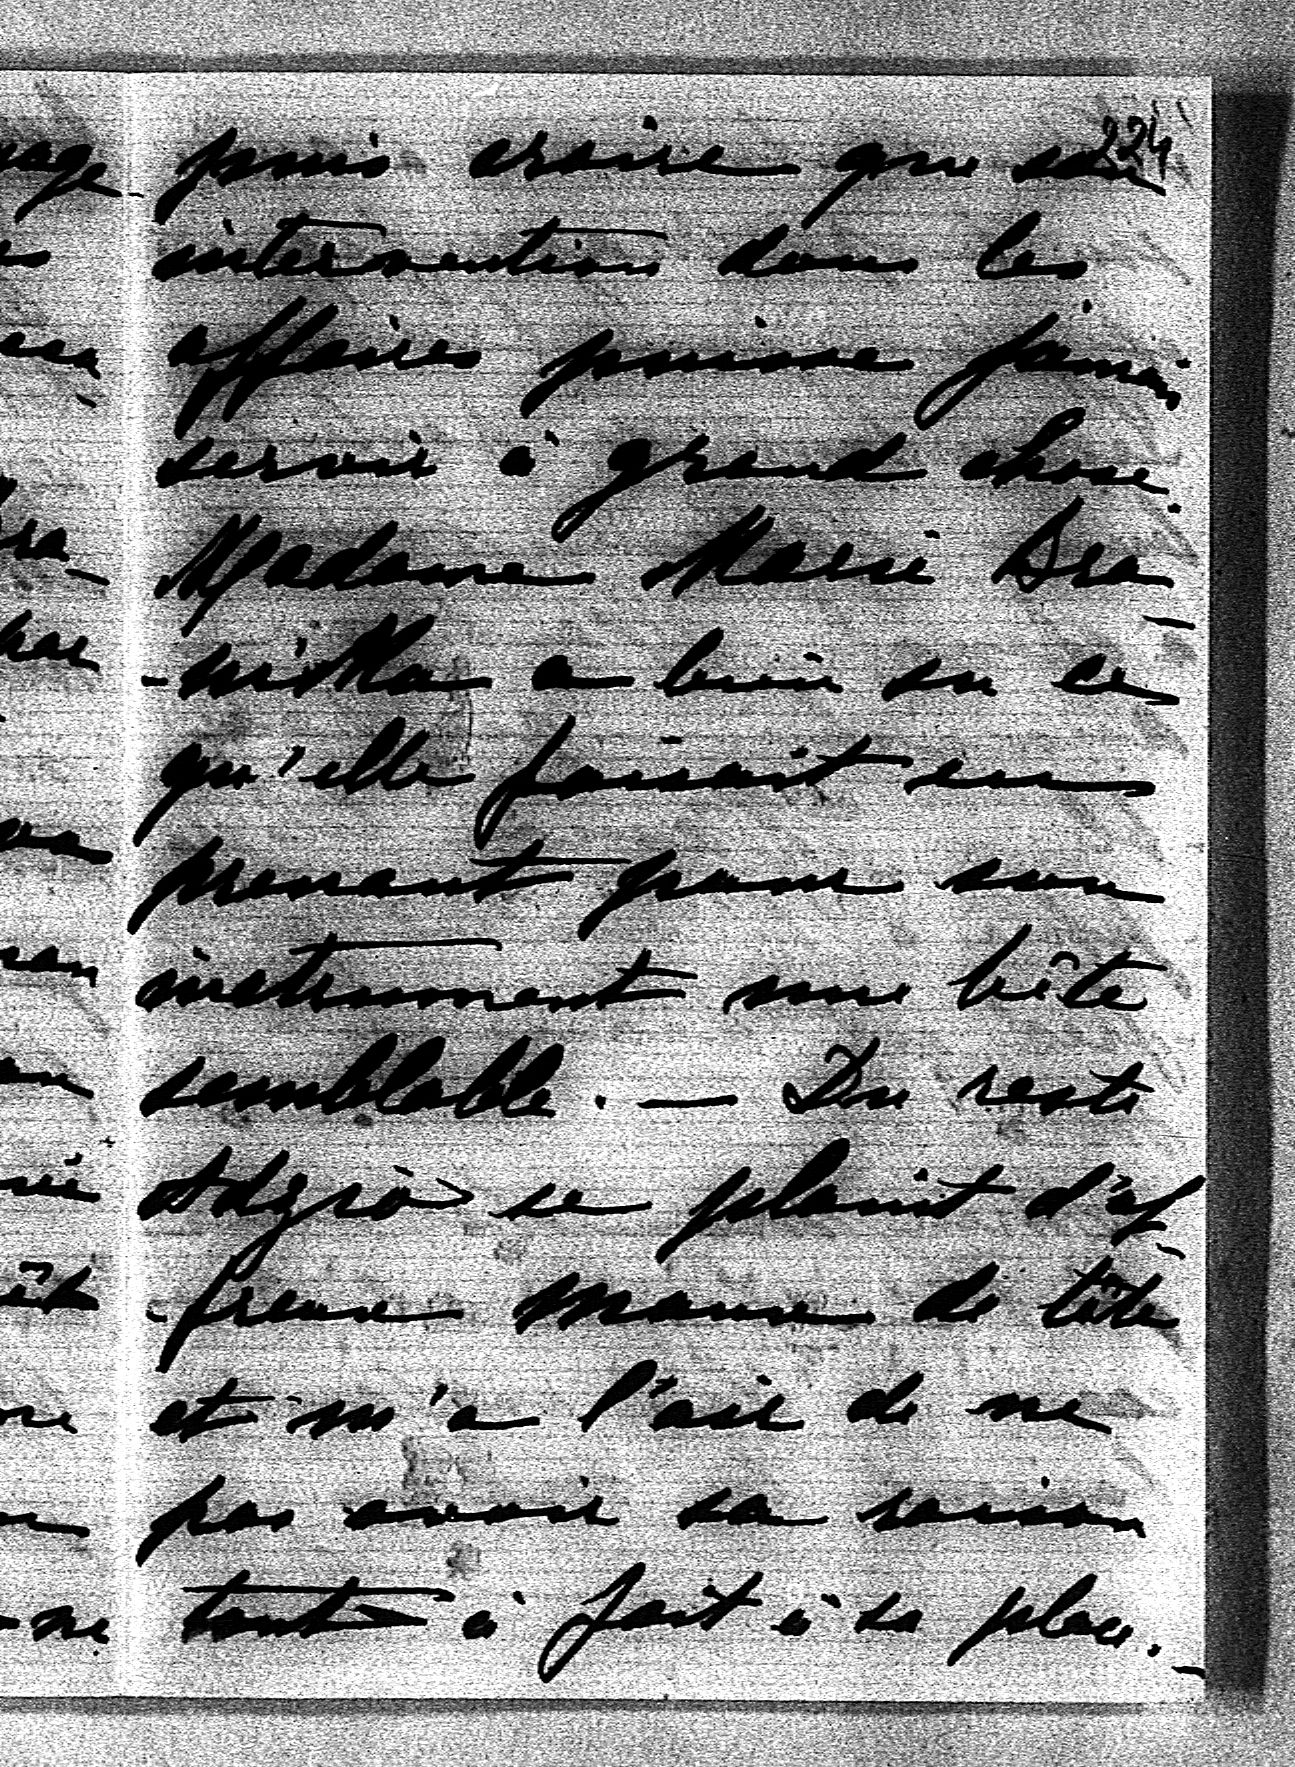 224
puis croire que son
intervention dans les
affaires puisse jamais
servir à grand chose.
Madame Marie Dra-
-snitka a bien su ce
qu'elle faisait en
prenant pour son
instrument une bête
semblable. — Du reste
se plaint d'af-
-freux maux de tête
et m'a l'air de ne
pas avoir sa raison
tout à fait à sa place. —